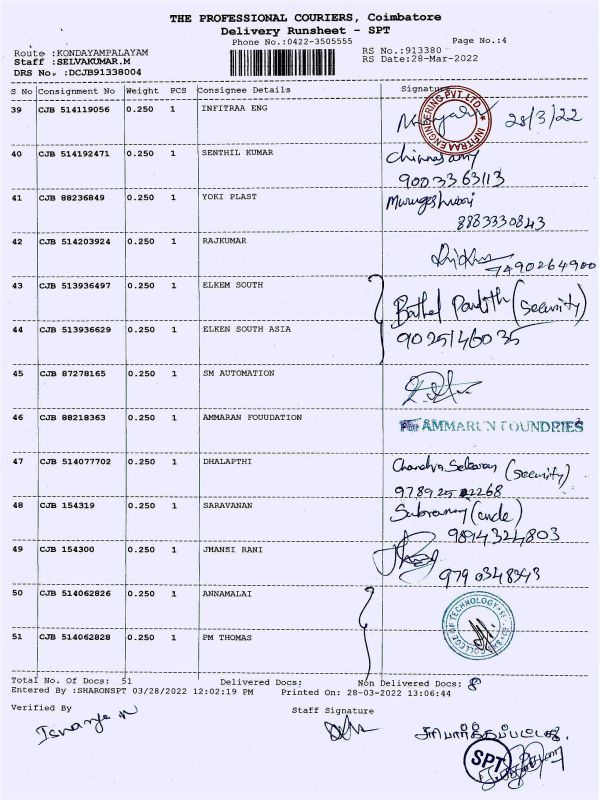 THE PROFESSIONAL COURIERS, Coimbatore
Delivery Runsheet - SPT
Phone No.:0422-3505555 Page No.:4
Route :KONDAYAMPALAYAM RS No.:913380
Staff :SELVAKUMAR.M RS Date:28-Mar-2022
DRS No. :DCJB91338004
S No Consignment No Weight PCS Consignee Details Signature
39 CJB 514119056 0.250 1 INFITRAA ENG 28/3/22
INFITRAA ENGINEERING PVT LTD
40 CJB 514192471 0.250 1 SENTHIL KUMAR Chinnasamy
9003363113
41 CJB 88236849 0.250 1 YOKI PLAST Murugeshwari
8883330843
42 CJB 514203924 0.250 1 RAJKUMAR
7490264900
43 CJB 513936497 0.250 1 ELKEM SOUTH (Security)
44 CJB 513936629 0.250 1 ELKEN SOUTH ASIA 9025146035
45 CJB 87278165 0.250 1 SM AUTOMATION
46 CJB 88218363 0.250 1 AMMARAN FOUUDATION AMMARUN FOUNDRIES
47 CJB 514077702 0.250 1 DHALAPTHI Chandra Sekaran (Security)
48 CJB 154319 0.250 1 SARAVANAN
9894324803
49 CJB 154300 0.250 1 JHANSI RANI
9790348343
50 CJB 514062826 0.250 1 ANNAMALAI
COLLEGE OF TECHNOLOGY
51 CJB 514062828 0.250 1 PM THOMAS
Total No. Of Docs: 51 Delivered Docs: Non Delivered Docs: 8
Entered By :SHARONSPT 03/28/2022 12:02:19 PM Printed On: 28-03-2022 13:06:44
Verified By Staff Signature
சரிபார்க்கப்பட்டது.
SPT